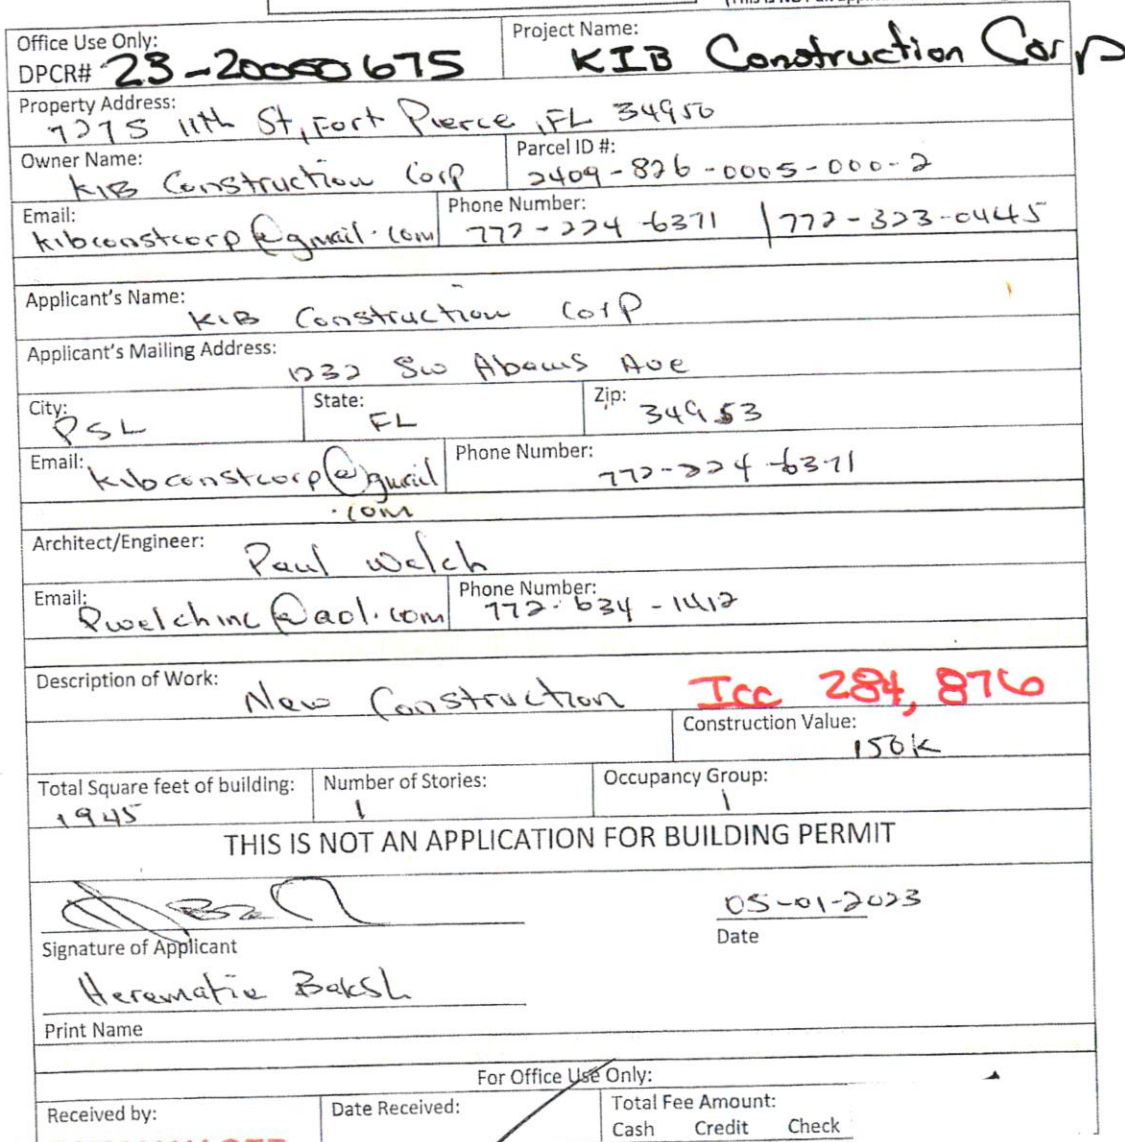 Office Use Only:
DPCR# 23-20000675
Project Name:
KIB Construction Corp
Property Address:
727 S 11th St, Fort Pierce, FL 34950
Owner Name:
KIB Construction Corp
Parcel ID #:
2409-826-0005-000-2
Email:
kibconstcorp@gmail.com
Phone Number:
772-224-6371 / 772-323-0445
Applicant's Name:
KIB Construction Corp
Applicant's Mailing Address:
1232 SW Abams Ave
City:
PSL
State:
FL
Zip:
34953
Email:
kibconstcorp@gmail
.com
Phone Number:
772-224-6371
Architect/Engineer:
Paul Welch
Email:
Pwelchinc@aol.com
Phone Number:
772-634-1412
Description of Work:
New Construction
Icc 284,876
Construction Value:
150K
Total Square feet of building:
1945
Number of Stories:
1
Occupancy Group:
1
THIS IS NOT AN APPLICATION FOR BUILDING PERMIT
05-01-2023
Signature of Applicant
Date
Herematie Baksh
Print Name
For Office Use Only:
Received by:
Date Received:
Total Fee Amount:
Cash Credit Check